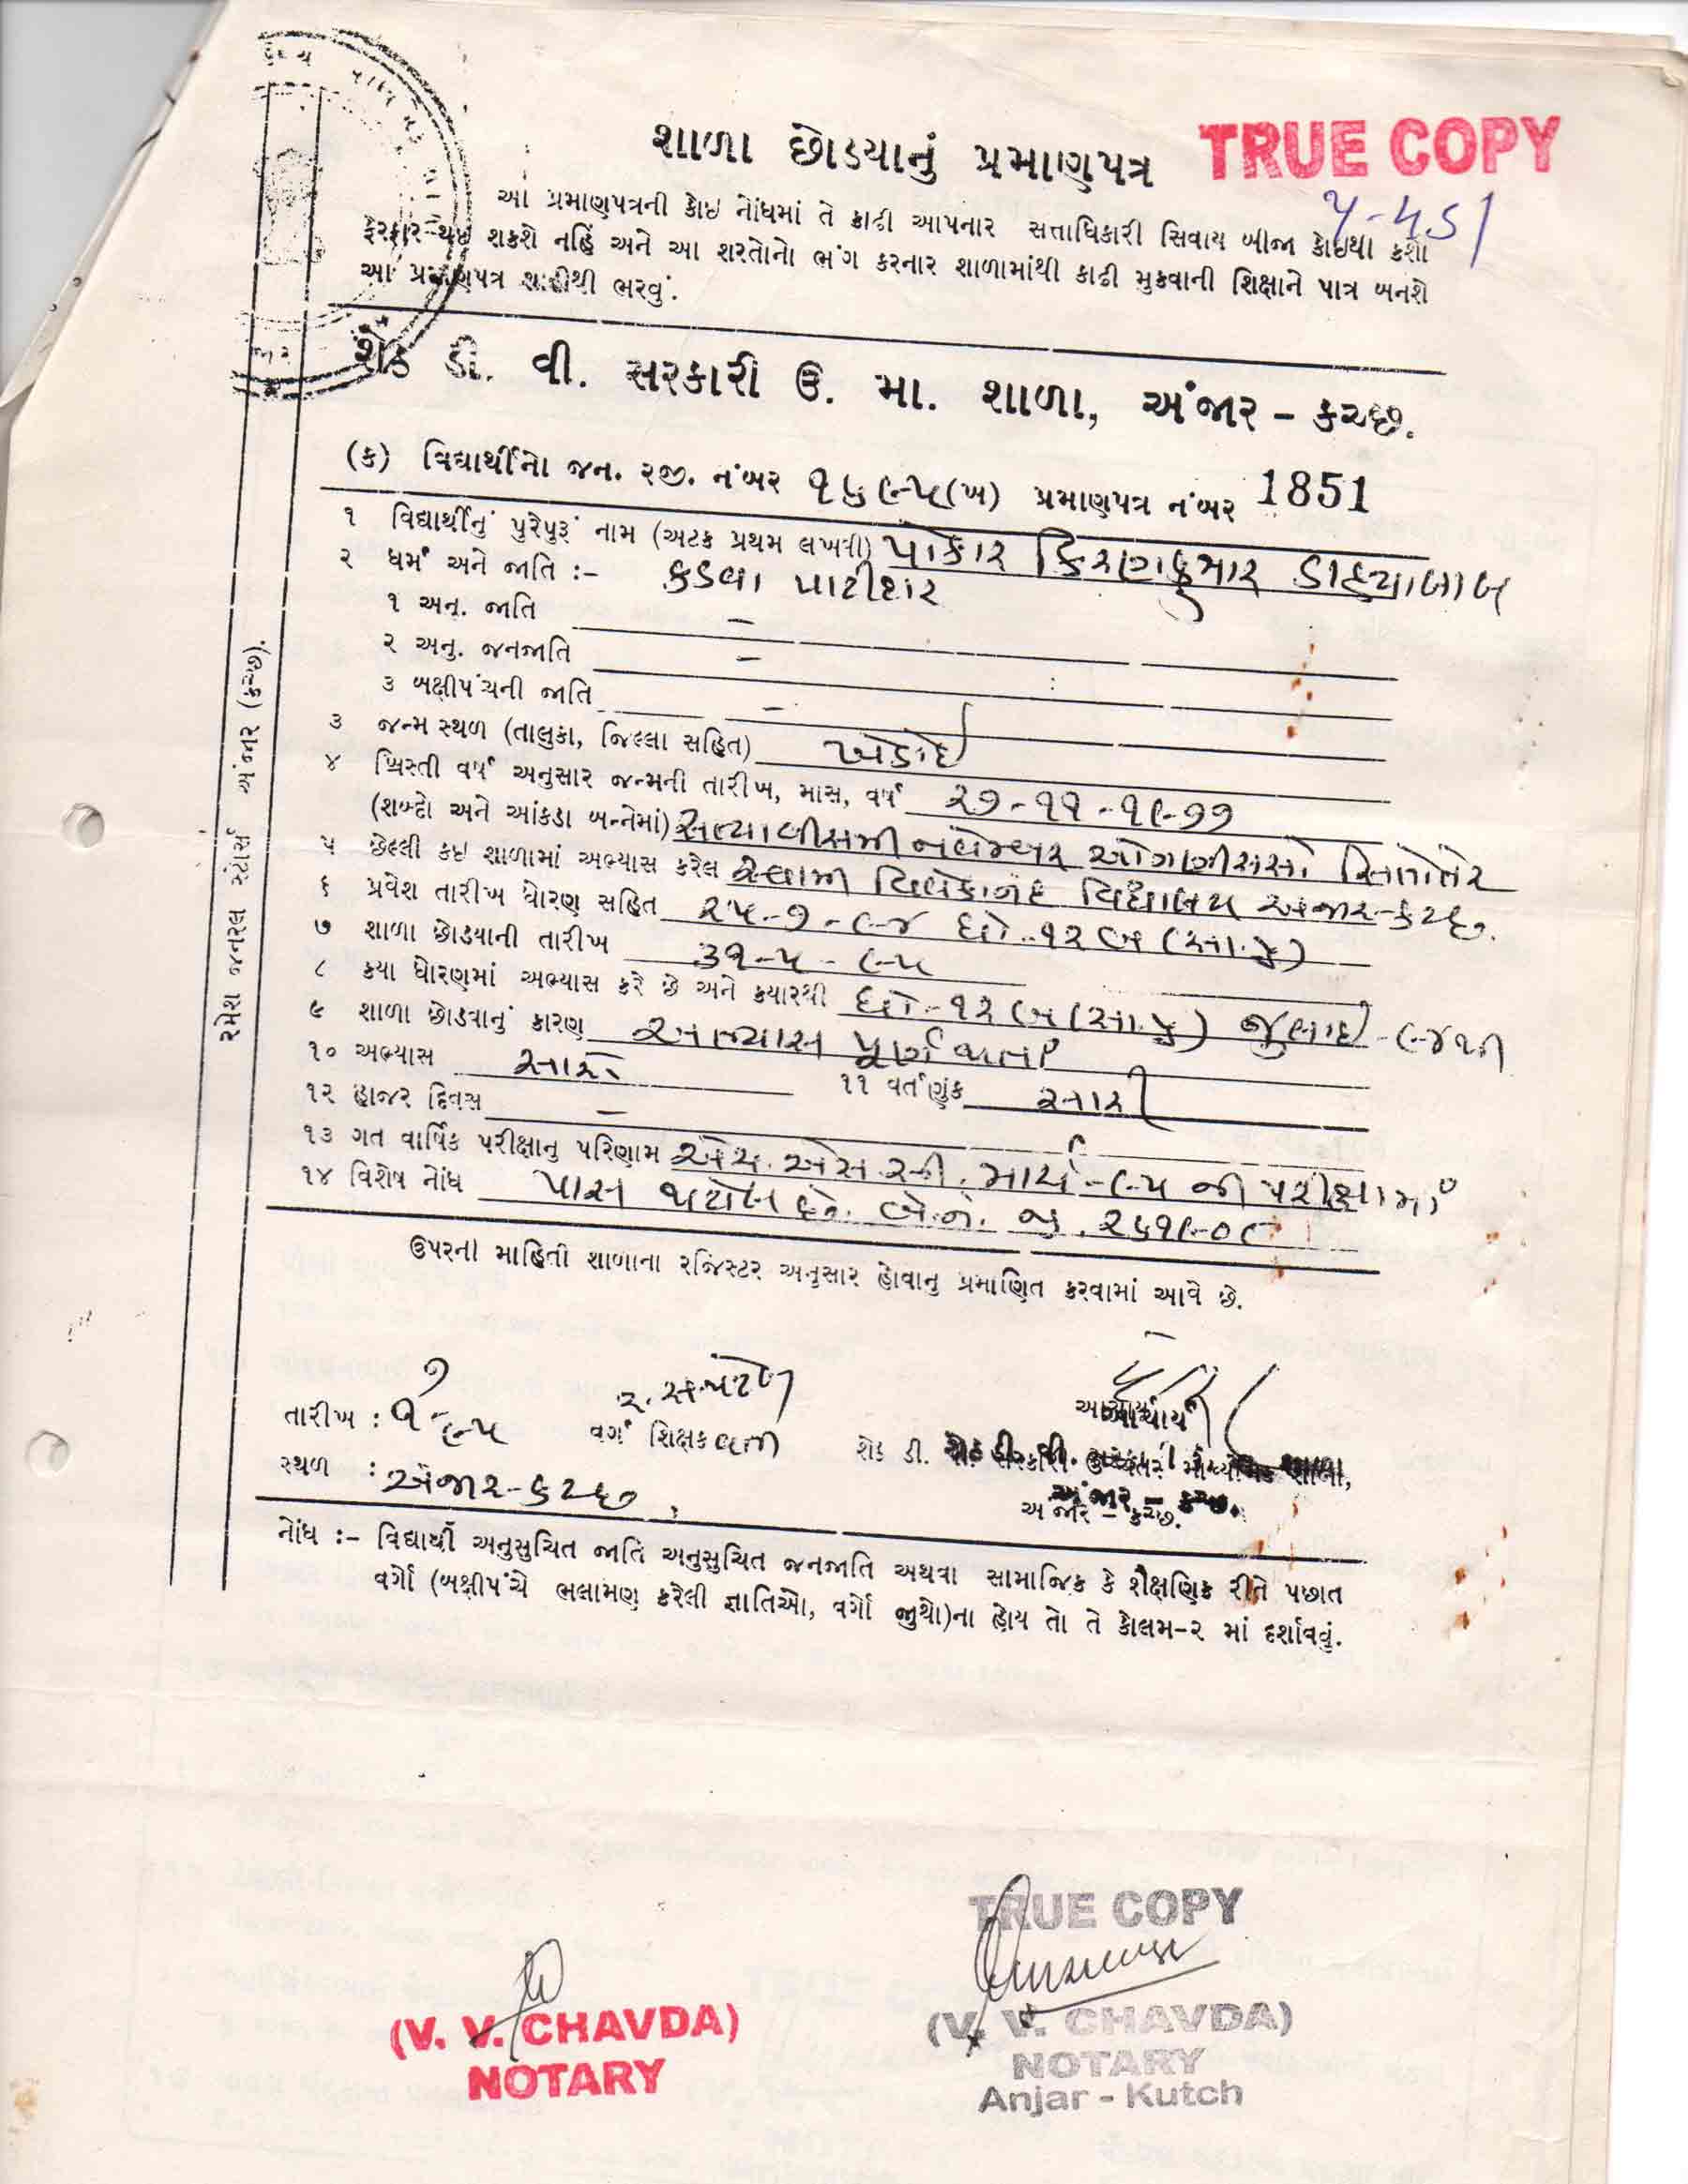 શાળા છોડયાનું પ્રમાણપત્ર
TRUE COPY
આ પ્રમાણપત્રની કોઇ નોંધમાં તે કાઢી આપનાર સત્તાધિકારી સિવાય બીજા કોઇથી કશો
ફેરફાર થઇ શકશે નહિં અને આ શરતોનો ભંગ કરનાર શાળામાંથી કાઢી મુકવાની શિક્ષાને પાત્ર બનશે
આ પ્રમાણપત્ર શાહીથી ભરવું.
શેઠ ડી. વી. સરકારી ઉ. મા. શાળા, અંજાર - કચ્છ.
(ક) વિદ્યાર્થીનો જન. રજી. નંબર ૧૬૯૫(ખ) પ્રમાણપત્ર નંબર 1851
૧ વિદ્યાર્થીનું પુરેપુરૂં નામ (અટક પ્રથમ લખવી) પોકાર કિરણકુમાર ડાહ્યાલાલ
૨ ધર્મ અને જાતિ :- કડવા પાટીદાર
૧ અનુ. જાતિ -
૨ અનુ. જનજાતિ -
૩ બક્ષીપંચની જાતિ -
૩ જન્મ સ્થળ (તાલુકા, જિલ્લા સહિત) ખેડોઈ
૪ ખ્રિસ્તી વર્ષ અનુસાર જન્મની તારીખ, માસ, વર્ષ ૨૭-૧૧-૧૯૭૭
(શબ્દો અને આંકડા બન્નેમાં) સત્યાવીસમી નવેમ્બર ઓગણીસસો સિત્તોતેર
૫ છેલ્લી કઇ શાળામાં અભ્યાસ કરેલ સ્વામી વિવેકાનંદ વિદ્યાલય અંજાર-કચ્છ.
૬ પ્રવેશ તારીખ ધોરણ સહિત ૨૫-૭-૯૪ ધો-૧૨ બ (સા.પ્ર)
૭ શાળા છોડયાની તારીખ ૩૧-૫-૯૫
૮ કયા ધોરણમાં અભ્યાસ કરે છે અને કયારથી ધો-૧૨ બ (સા.પ્ર) જુલાઈ-૯૪થી
૯ શાળા છોડવાનું કારણ અભ્યાસ પૂર્ણ થતાં
૧૦ અભ્યાસ સારો ૧૧ વર્તણુંક સારી
૧૨ હાજર દિવસ -
૧૩ ગત વાર્ષિક પરીક્ષાનુ પરિણામ એચ.એસ.સી. માર્ચ-૯૫ ની પરીક્ષામાં
૧૪ વિશેષ નોંધ પાસ થયેલ છે. બે.નં. જી.૨૬૧૯૦૯
ઉપરની માહિતી શાળાના રજિસ્ટર અનુસાર હોવાનુ પ્રમાણિત કરવામાં આવે છે.
તારીખ : ૧-૭-૯૫
વર્ગ શિક્ષક વતી
આચાર્ય
શેઠ ડી. વી. સરકારી ઉચ્ચતર માધ્યમિક શાળા,
સ્થળ : અંજાર-કચ્છ
અંજાર - કચ્છ.
નોંધ :- વિદ્યાર્થી અનુસુચિત જાતિ અનુસુચિત જનજાતિ અથવા સામાજિક કે શૈક્ષણિક રીતે પછાત
વર્ગો (બક્ષીપંચે ભલામણ કરેલી જ્ઞાતિઓ, વર્ગો જુથો)ના હોય તો તે કોલમ-૨ માં દર્શાવવું.
રમેશ જનરલ સ્ટોર્સ અંજાર (કચ્છ).
TRUE COPY
(V. V. CHAVDA)
NOTARY
(V. V. CHAVDA)
NOTARY
Anjar - Kutch